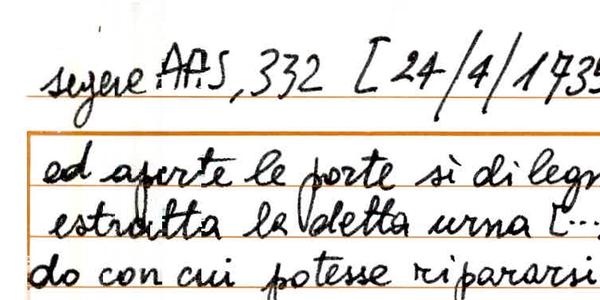 segue AAS, 332 [24/4/1735
ed aperte le porte sì di legn
estratta la detta urna [...
do con cui potesse ripararsi